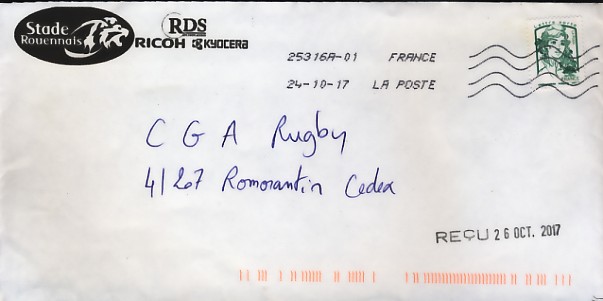 Stade
Rouennais
RDS
RICOH KYOCERA
25316A-01 FRANCE
24-10-17 LA POSTE
C G A Rugby
41207 Romorantin Cedex
REÇU 26 OCT. 2017